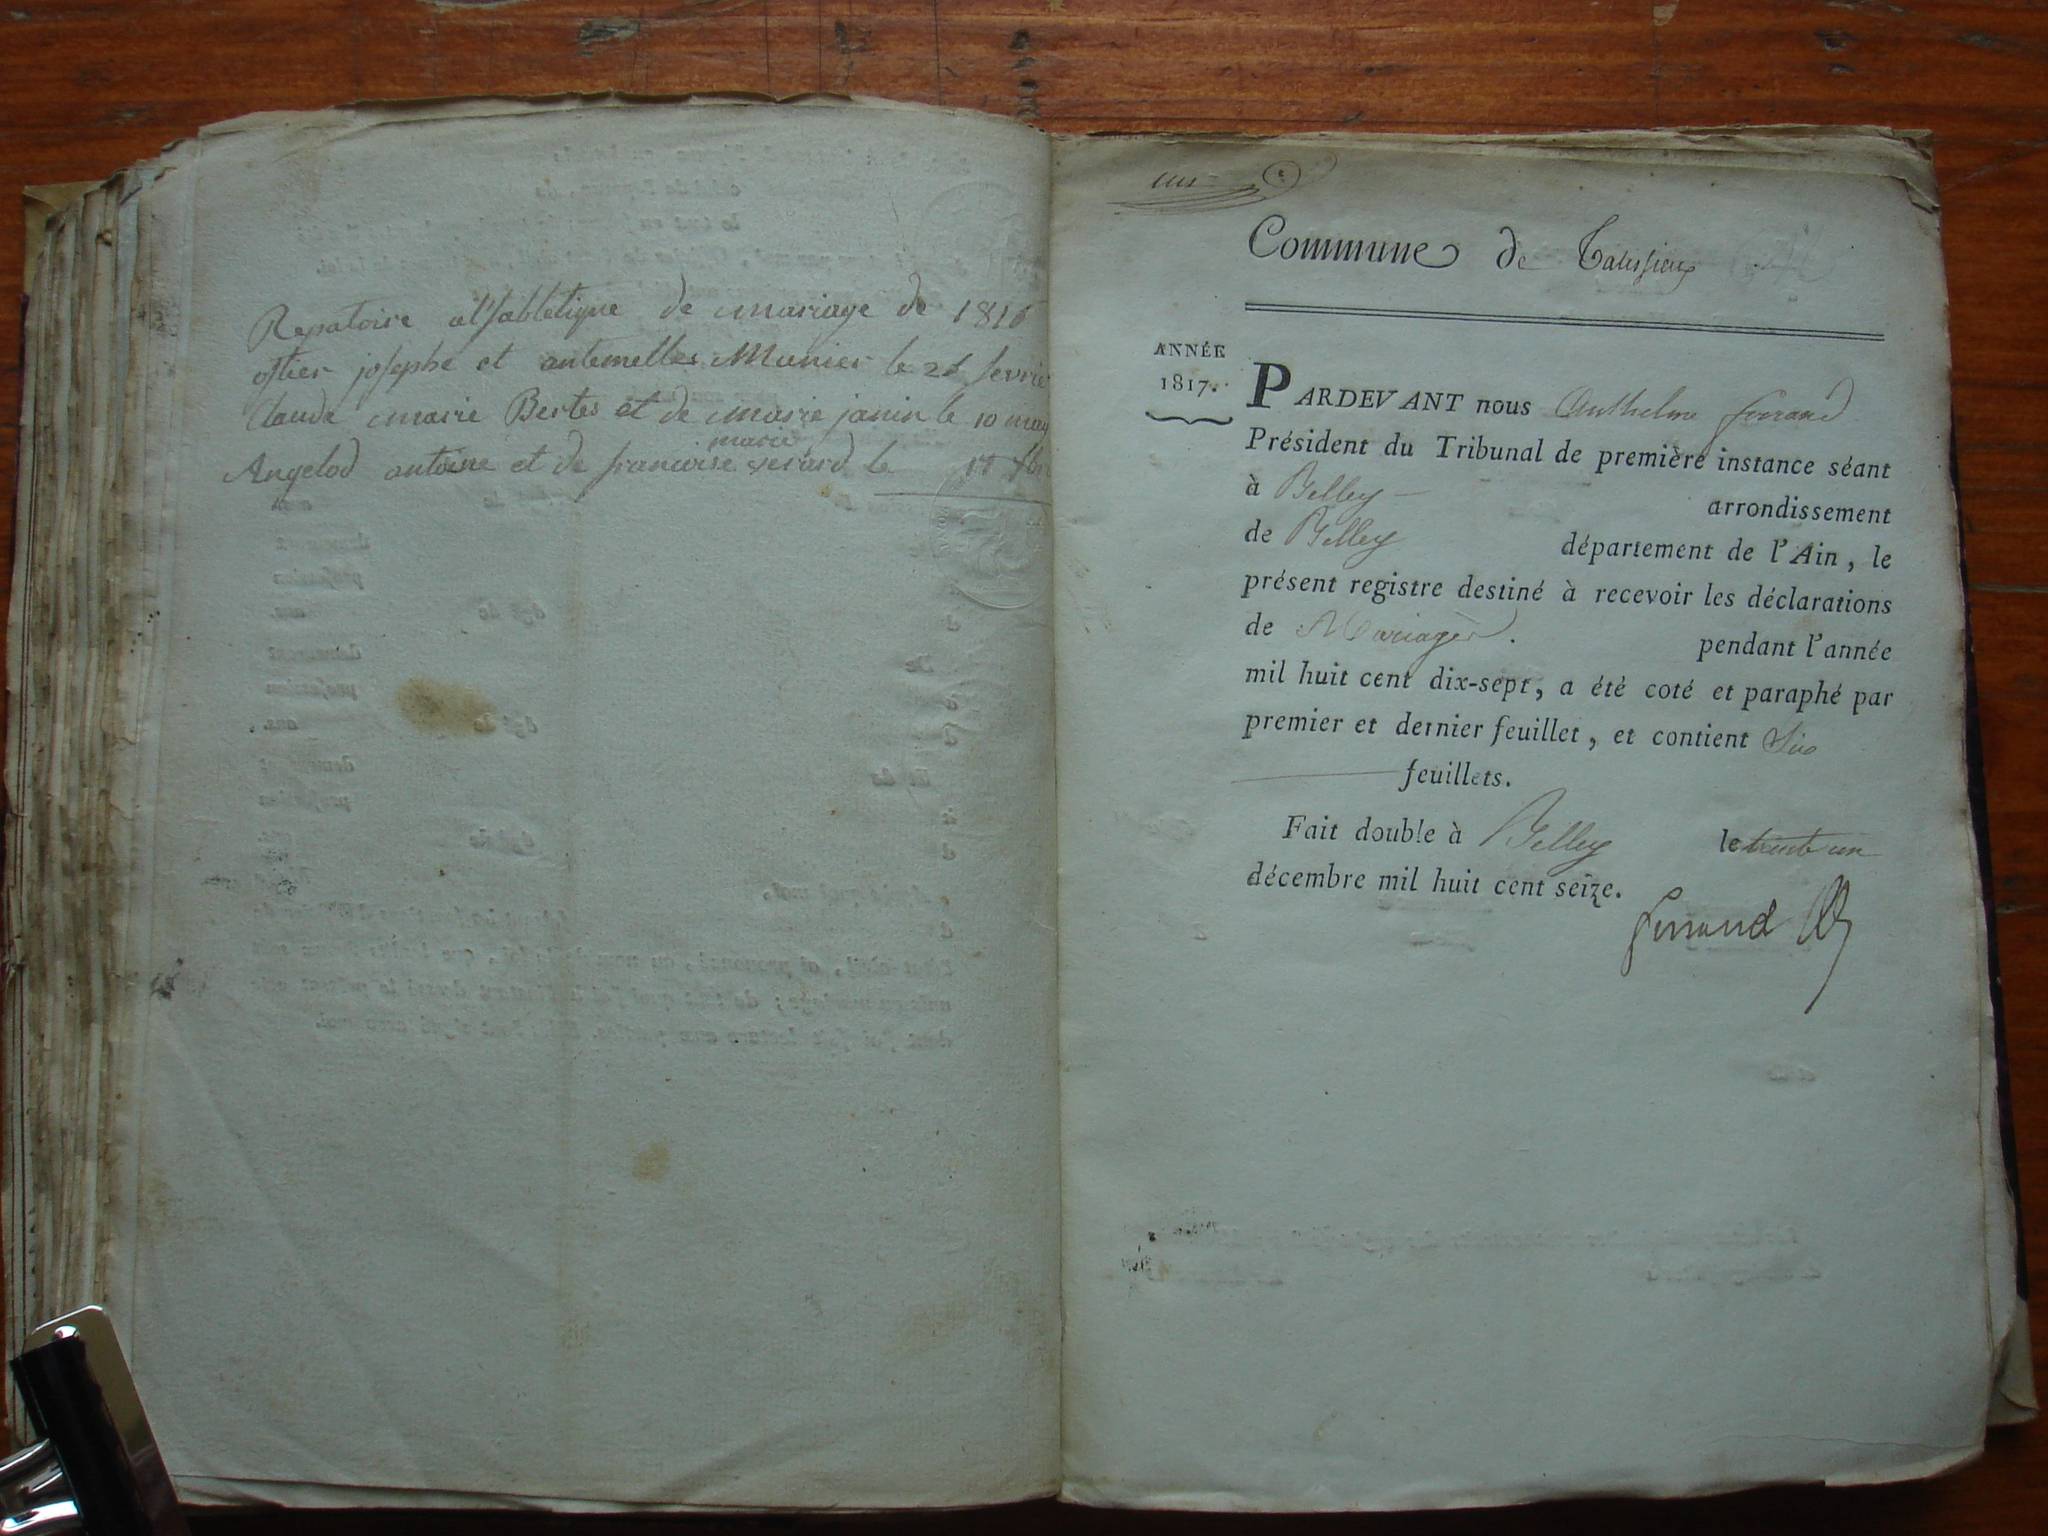 Repatoire alfabletique de mariage de 1816
ostier josephe et antemelles Munier le 26 fevrie
Claude marie Bertes et de marie janin le 10 may
marie
Angelod antoine et de francoise serard le 17
un
Commune de Talissieux
ANNÉE
1817.
PARDEVANT nous Anthelme ferrand
Président du Tribunal de première instance séant
à Belley arrondissement
de Belley département de l'Ain, le
présent registre destiné à recevoir les déclarations
de Mariages. pendant l'année
mil huit cent dix-sept, a été coté et paraphé par
premier et dernier feuillet, et contient Six
feuillets.
Fait double à Belley le trente un
décembre mil huit cent seize.
ferrand